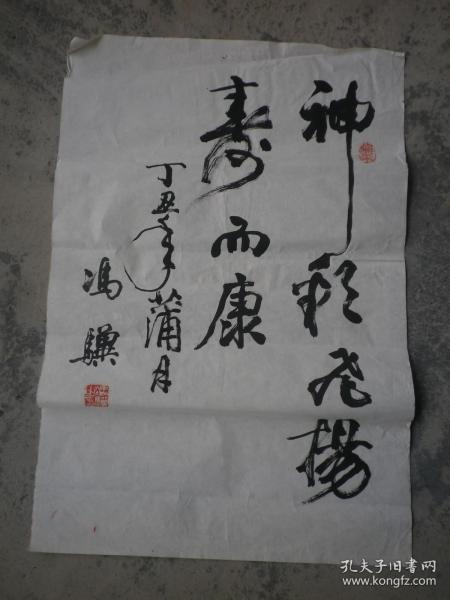 神彩飞杨
寿而康
丁丑年蒲月
冯骥
孔夫子旧书网
www.kongfz.com